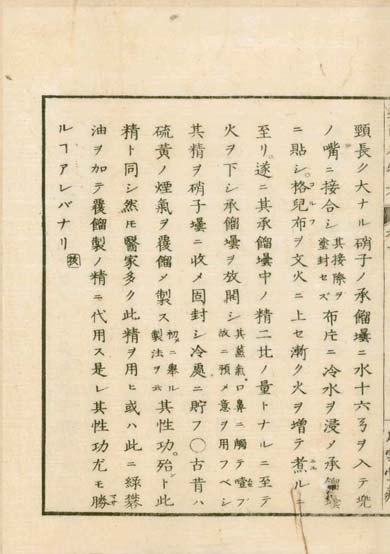 頸長ク大ナル硝子ノ承餾壜ニ水十六弓ヲ入テ兠
ノ嘴ニ接合シ其接際ヲ塗封セズ布片ニ冷水ヲ浸メ承餾壜
ニ貼シ格兒布ヲ文火ニ上セ漸ク火ヲ増テ煮ルニ
至リ遂ニ其承餾壜中ノ精二比ノ量トナルニ至テ
火ヲ下シ承餾壜ヲ放開シ其蒸氣口鼻ニ觸テ噎ブ故ニ預メ意ヲ用フベシ
其精ヲ硝子壜ニ收メ固封シ冷處ニ貯フ〇古昔ハ
硫黄ノ煙氣ヲ覆餾メ製ス初ニ擧ル製法ヲ云其性功殆ト此
精ト同シ然モ醫家多ク此精ヲ用ヒ或ハ此ニ緑礬
油ヲ加テ覆餾製ノ精ニ代用ス是レ其性功尤モ勝
ルヿアレバナリ